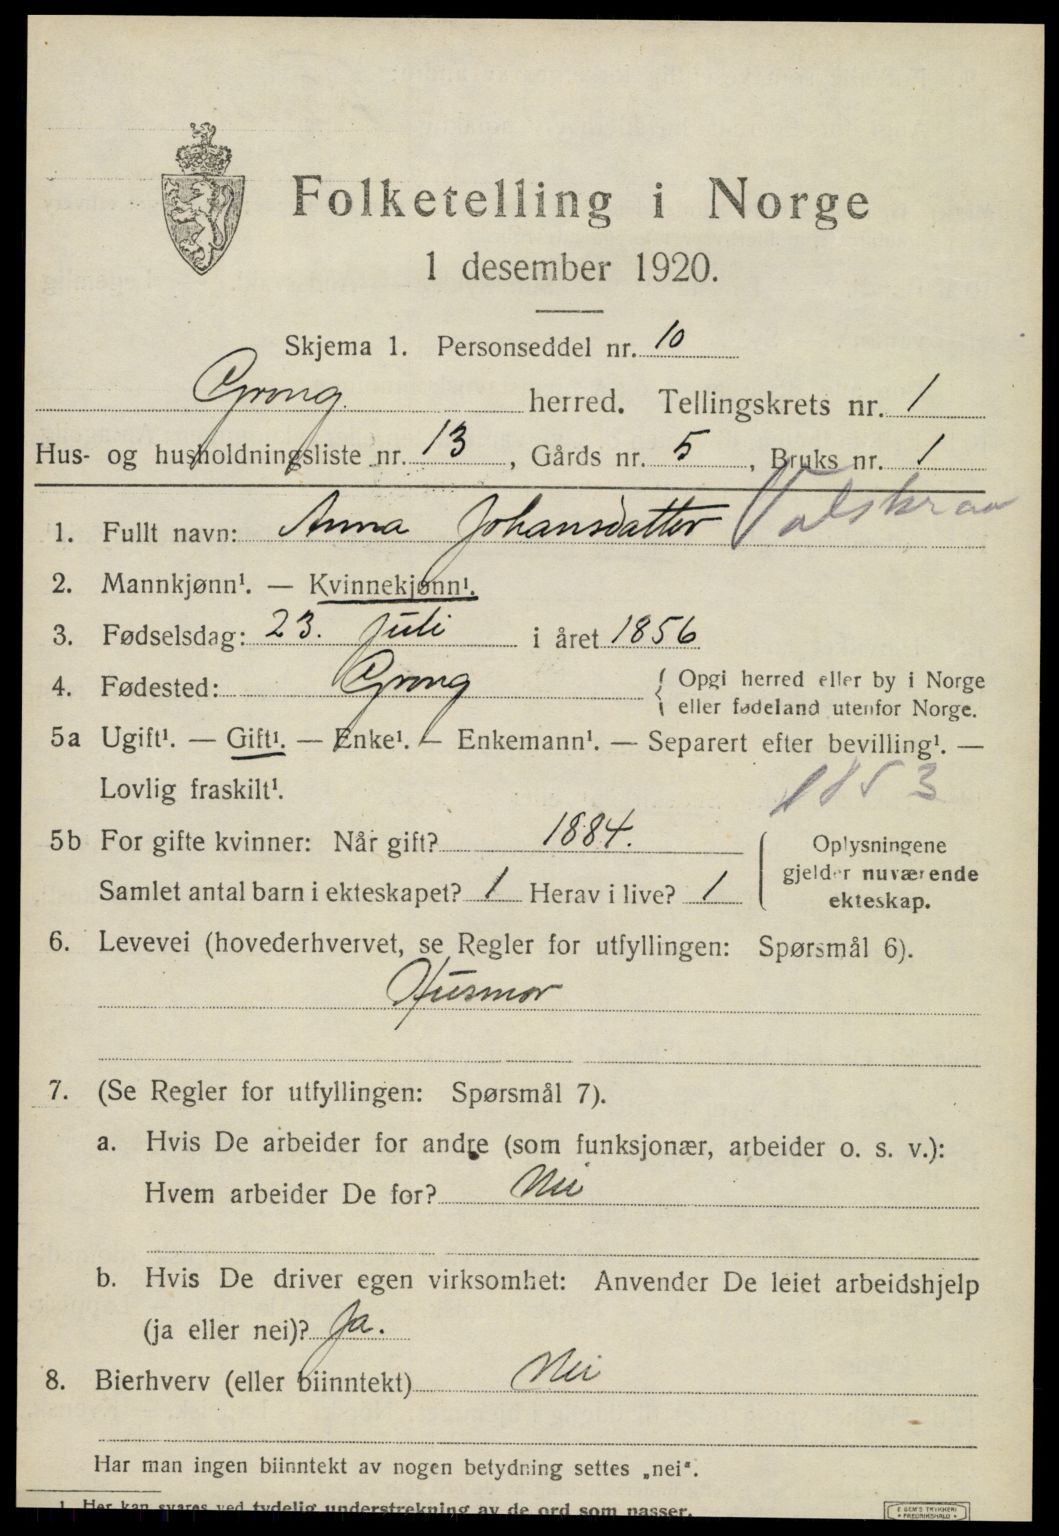 Folketelling i Norge
1 desember 1920.
Skjema 1. Personseddel nr. 10
Grong herred. Tellingskrets nr. 1
Hus- og husholdningsliste nr. 13, Gårds nr. 5, Bruks nr. 1
1. Fullt navn: Anna Johansdatter
2. Mannkjønn¹. — Kvinnekjønn¹.
3. Fødselsdag: 23. juli i året 1856
4. Fødested: Grong { Opgi herred eller by i Norge
eller fødeland utenfor Norge.
5a Ugift¹. — Gift¹. — Enke¹. — Enkemann¹. — Separert efter bevilling¹. —
Lovlig fraskilt¹.
1853
5b For gifte kvinner: Når gift? 1884.
Samlet antal barn i ekteskapet? 1 Herav i live? 1
Oplysningene
gjelder nuværende
ekteskap.
6. Levevei (hovederhvervet, se Regler for utfyllingen: Spørsmål 6).
Husmor
7. (Se Regler for utfyllingen: Spørsmål 7).
a. Hvis De arbeider for andre (som funksjonær, arbeider o. s. v.):
Hvem arbeider De for? Nei
b. Hvis De driver egen virksomhet: Anvender De leiet arbeidshjelp
(ja eller nei)? Ja.
8. Bierhverv (eller biinntekt) Nei
Har man ingen biinntekt av nogen betydning settes „nei“.
1. Her kan svares ved tydelig understrekning av de ord som passer.